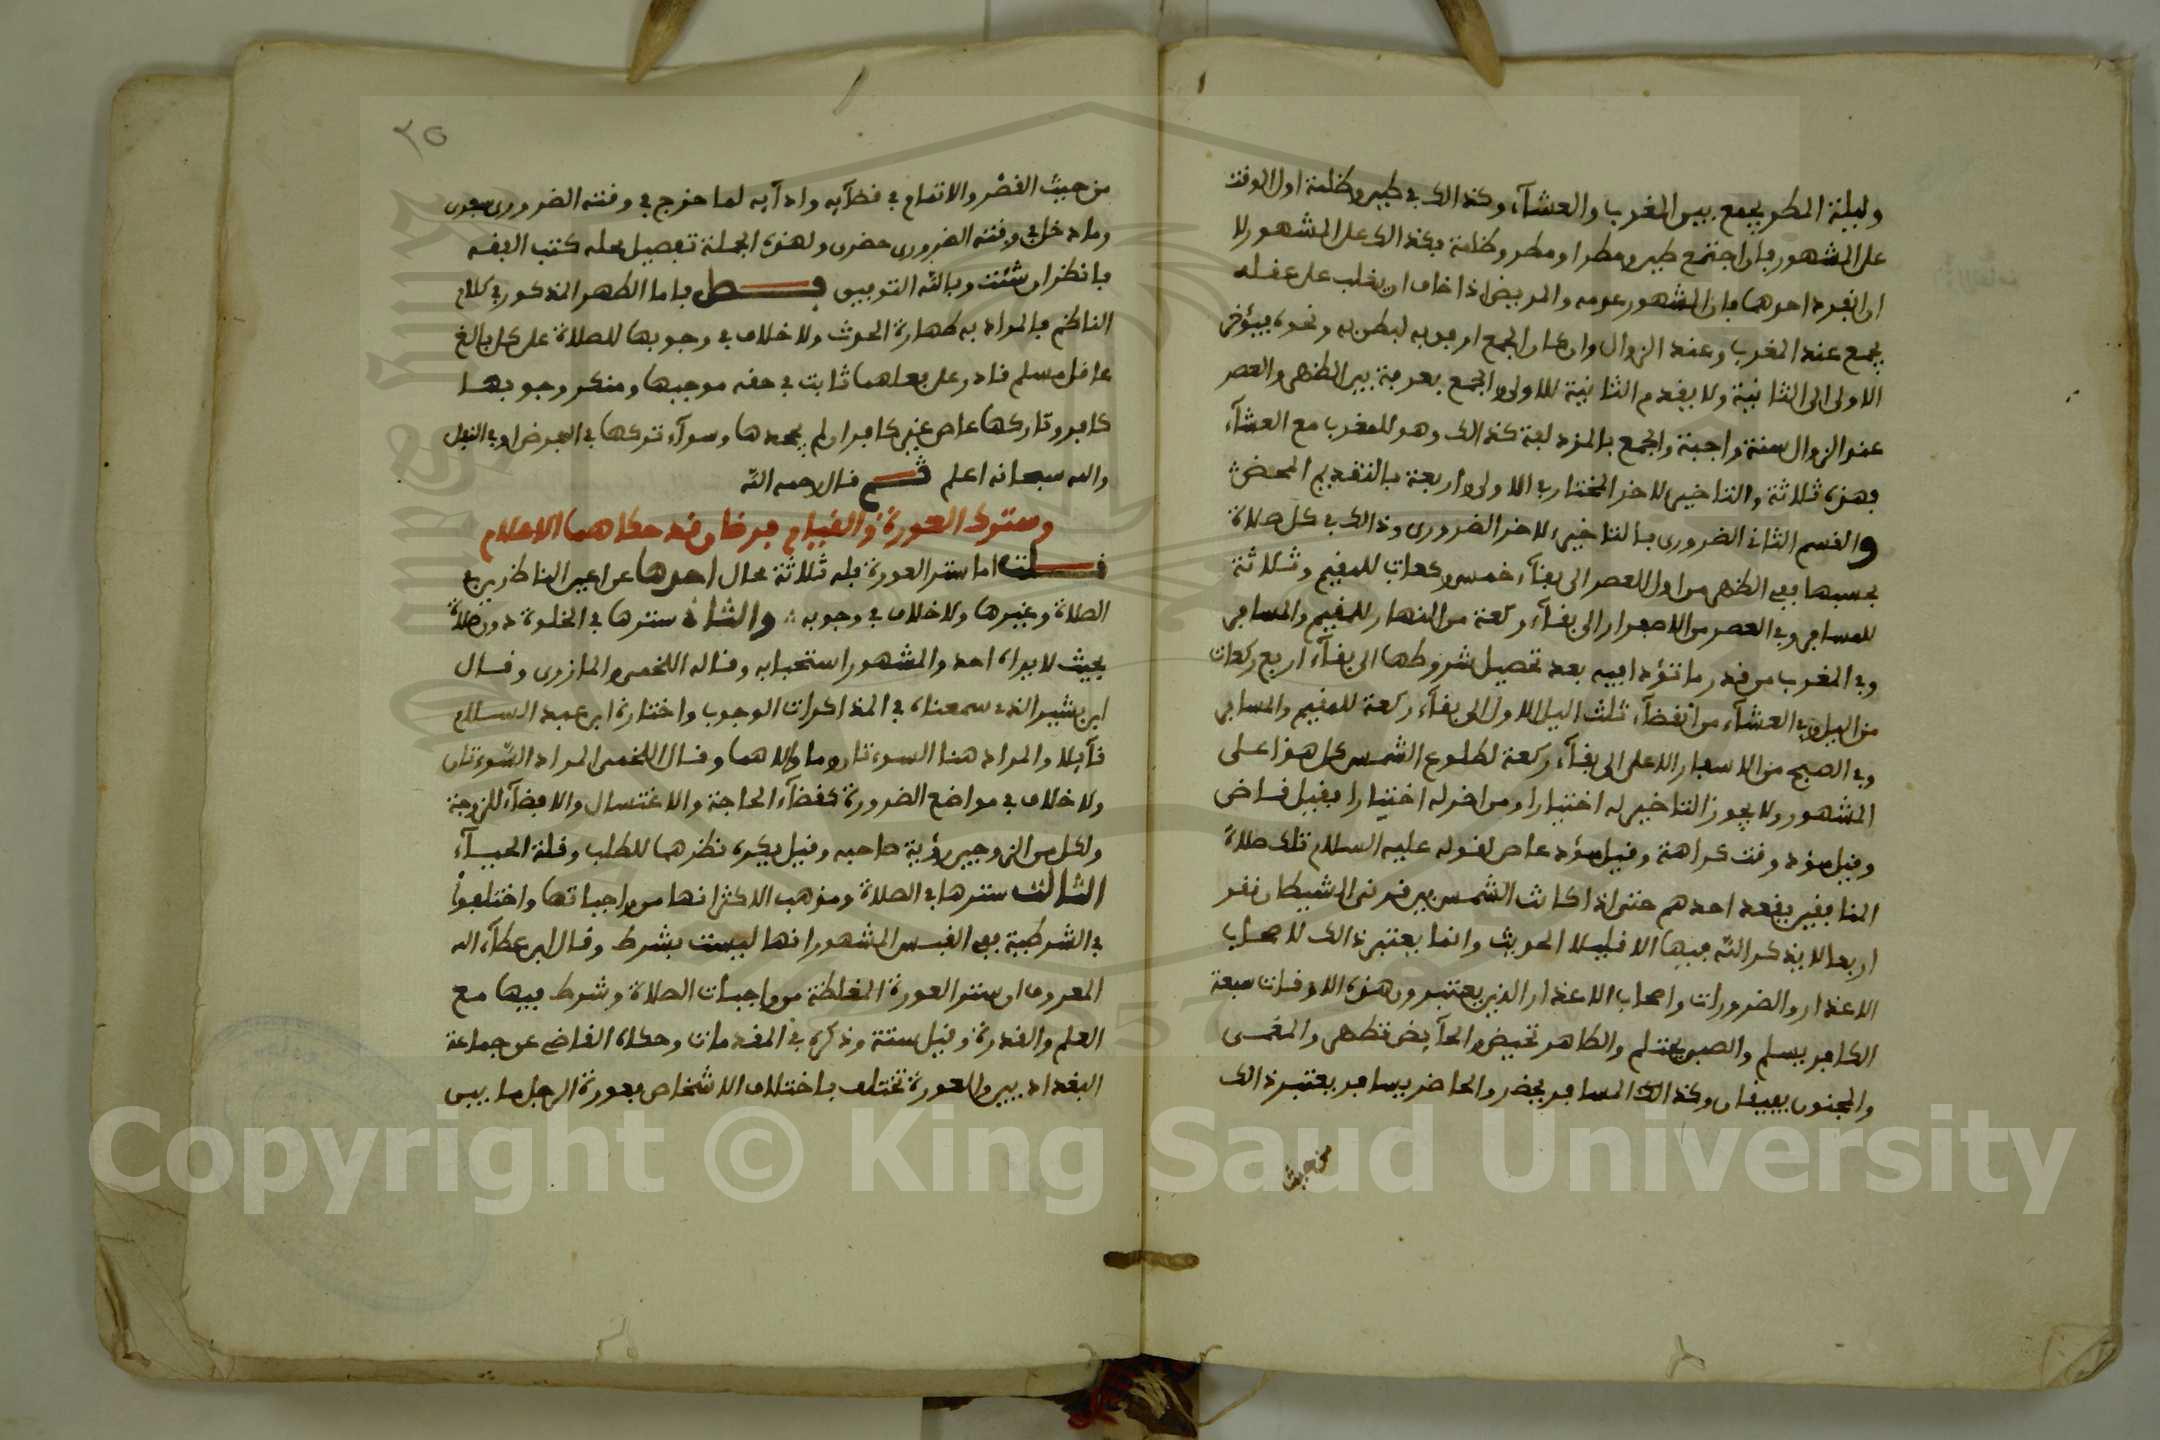 وليلة المطر يجمع بين المغرب والعشآء وكذالك في طين وظلمة اول الوقت
على المشهور فإن اجتمع طين ومطر او مطر وظلمة فكذالك على المشهور لا
ان انفرد احدهما فإن المشهور عدمه والمريض اذا خاف ان يغلب على عقله
يجمع عند المغرب وعند الزوال وان كان الجمع ارفق به لبطن به ونحوه فيؤخر
الاولى الى الثانية ولا يقدم الثانية للاولى والجمع بعرفة بين الظهر والعصر
عند الزوال سنة واجبة والجمع بالمزدلفة كذالك وهو للمغرب مع العشآء
فهذه ثلاثة والتاخير للاخر المختار في الاولى واربعة بالتقديم المحض
والقسم الثاني الضروري بالتاخير للاخر الضروري وذالك في كل صلاة
بحسبها ففي الظهر من اول العصر الى بقآء خمس ركعات للمقيم وثلاثة
للمسافر وفي العصر من الاصفرار الى بقآء ركعة من النهار للمقيم والمسافر
وفي المغرب من قدر ما تؤدا فيه بعد تحصيل شروطها الى بقآء اربع ركعات
من اليل وفي العشآء من انقضآء ثلث اليل الاول الى بقآء ركعة للمقيم والمسافر
وفي الصبح من الاسفار الاعلى الى بقآء ركعة لطلوع الشمس كل هذا على
المشهور ولا يجوز التاخير له اختيارا ومن اخر له اختيارا فقيل قاض
وقيل مؤد وقت كراهة وقيل مؤد عاص لقوله عليه السلام تلك صلاة
المنافقين يقعد احدهم حتى اذا كانت الشمس بين قرني الشيطان نقر
اربعا لا يذكر الله فيها الا قليلا الحديث وانما يعتبر ذالك لاصحاب
الاعذار والضرورات واصحاب الاعذار الذين يعتبرون هذه الاوقات سبعة
الكافر يسلم والصبي يحتلم والطاهر تحيض والحآيض تطهر والمغمى
والمجنون يفيقان وكذالك المسافر يحضر والحاضر يسافر يعتبر ذالك
من حيث
٢٥
من حيث القصْر والاتمام في قضآيه وادآيه لما خرج في وقته الضروري سفرى
وما دخل في وقته الضروري حضرى ولهذه الجملة تفصيل محله كتب الفقه
فانظر ان شئت وبالله التوفيق فصل فاما الطهر المذكور في كلام
الناظم فالمراد به طهارة الحدث ولا خلاف في وجوبها للصلاة على كل بالغ
عاقل مسلم قادر على فعلهما ثابت في حقه موجبها ومنكر وجوبها
كافر وتاركها عاص غير كافر ان لم يجحدها وسوآء تركها في الفرض او في النفل
والله سبحانه اعلم ثم قال رحمه الله
وسترك العورة والقيام فرضان قد حكاهما الاعلام
قلت اما ستر العورة فله ثلاثة محال احدها عن اعين الناظرين في
الصلاة وغيرها ولا خلاف في وجوبه والثانى سترها في الخلوة دون صلاة
بحيث لا يراه احد والمشهور استحبابه وقاله اللخمي والمازري وقال
ابن بشير الذي سمعناه في المذاكرات الوجوب واختاره ابن عبد السلام
قآيلا والمراد هنا السوءتان وما والاهما وقال اللخمي المراد السّوءتان
ولا خلاف في مواضع الضرورة كقضآء الحاجة والاغتسال والافضآء للزوجة
ولكل من الزوجين رؤية صاحبه وقيل يكره نظرهما للطلب وقلة الحيآء
الثالث سترها في الصلاة ومذهب الاكثر انها من واجباتها واختلفوا
في الشرطية ففي القبس المشهور انها ليست بشرط وقال ابن عطآء الله
المعروف ان ستر العورة المغلظة من واجبات الصلاة وشرط فيها مع
العلم والقدرة وقيل سنة وذكره في المقدمات وحكاه القاضي عن جماعة
البغداديين والعورة تختلف باختلاف الاشخاص فعورة الرجل ما بين
Copyright © King Saud University